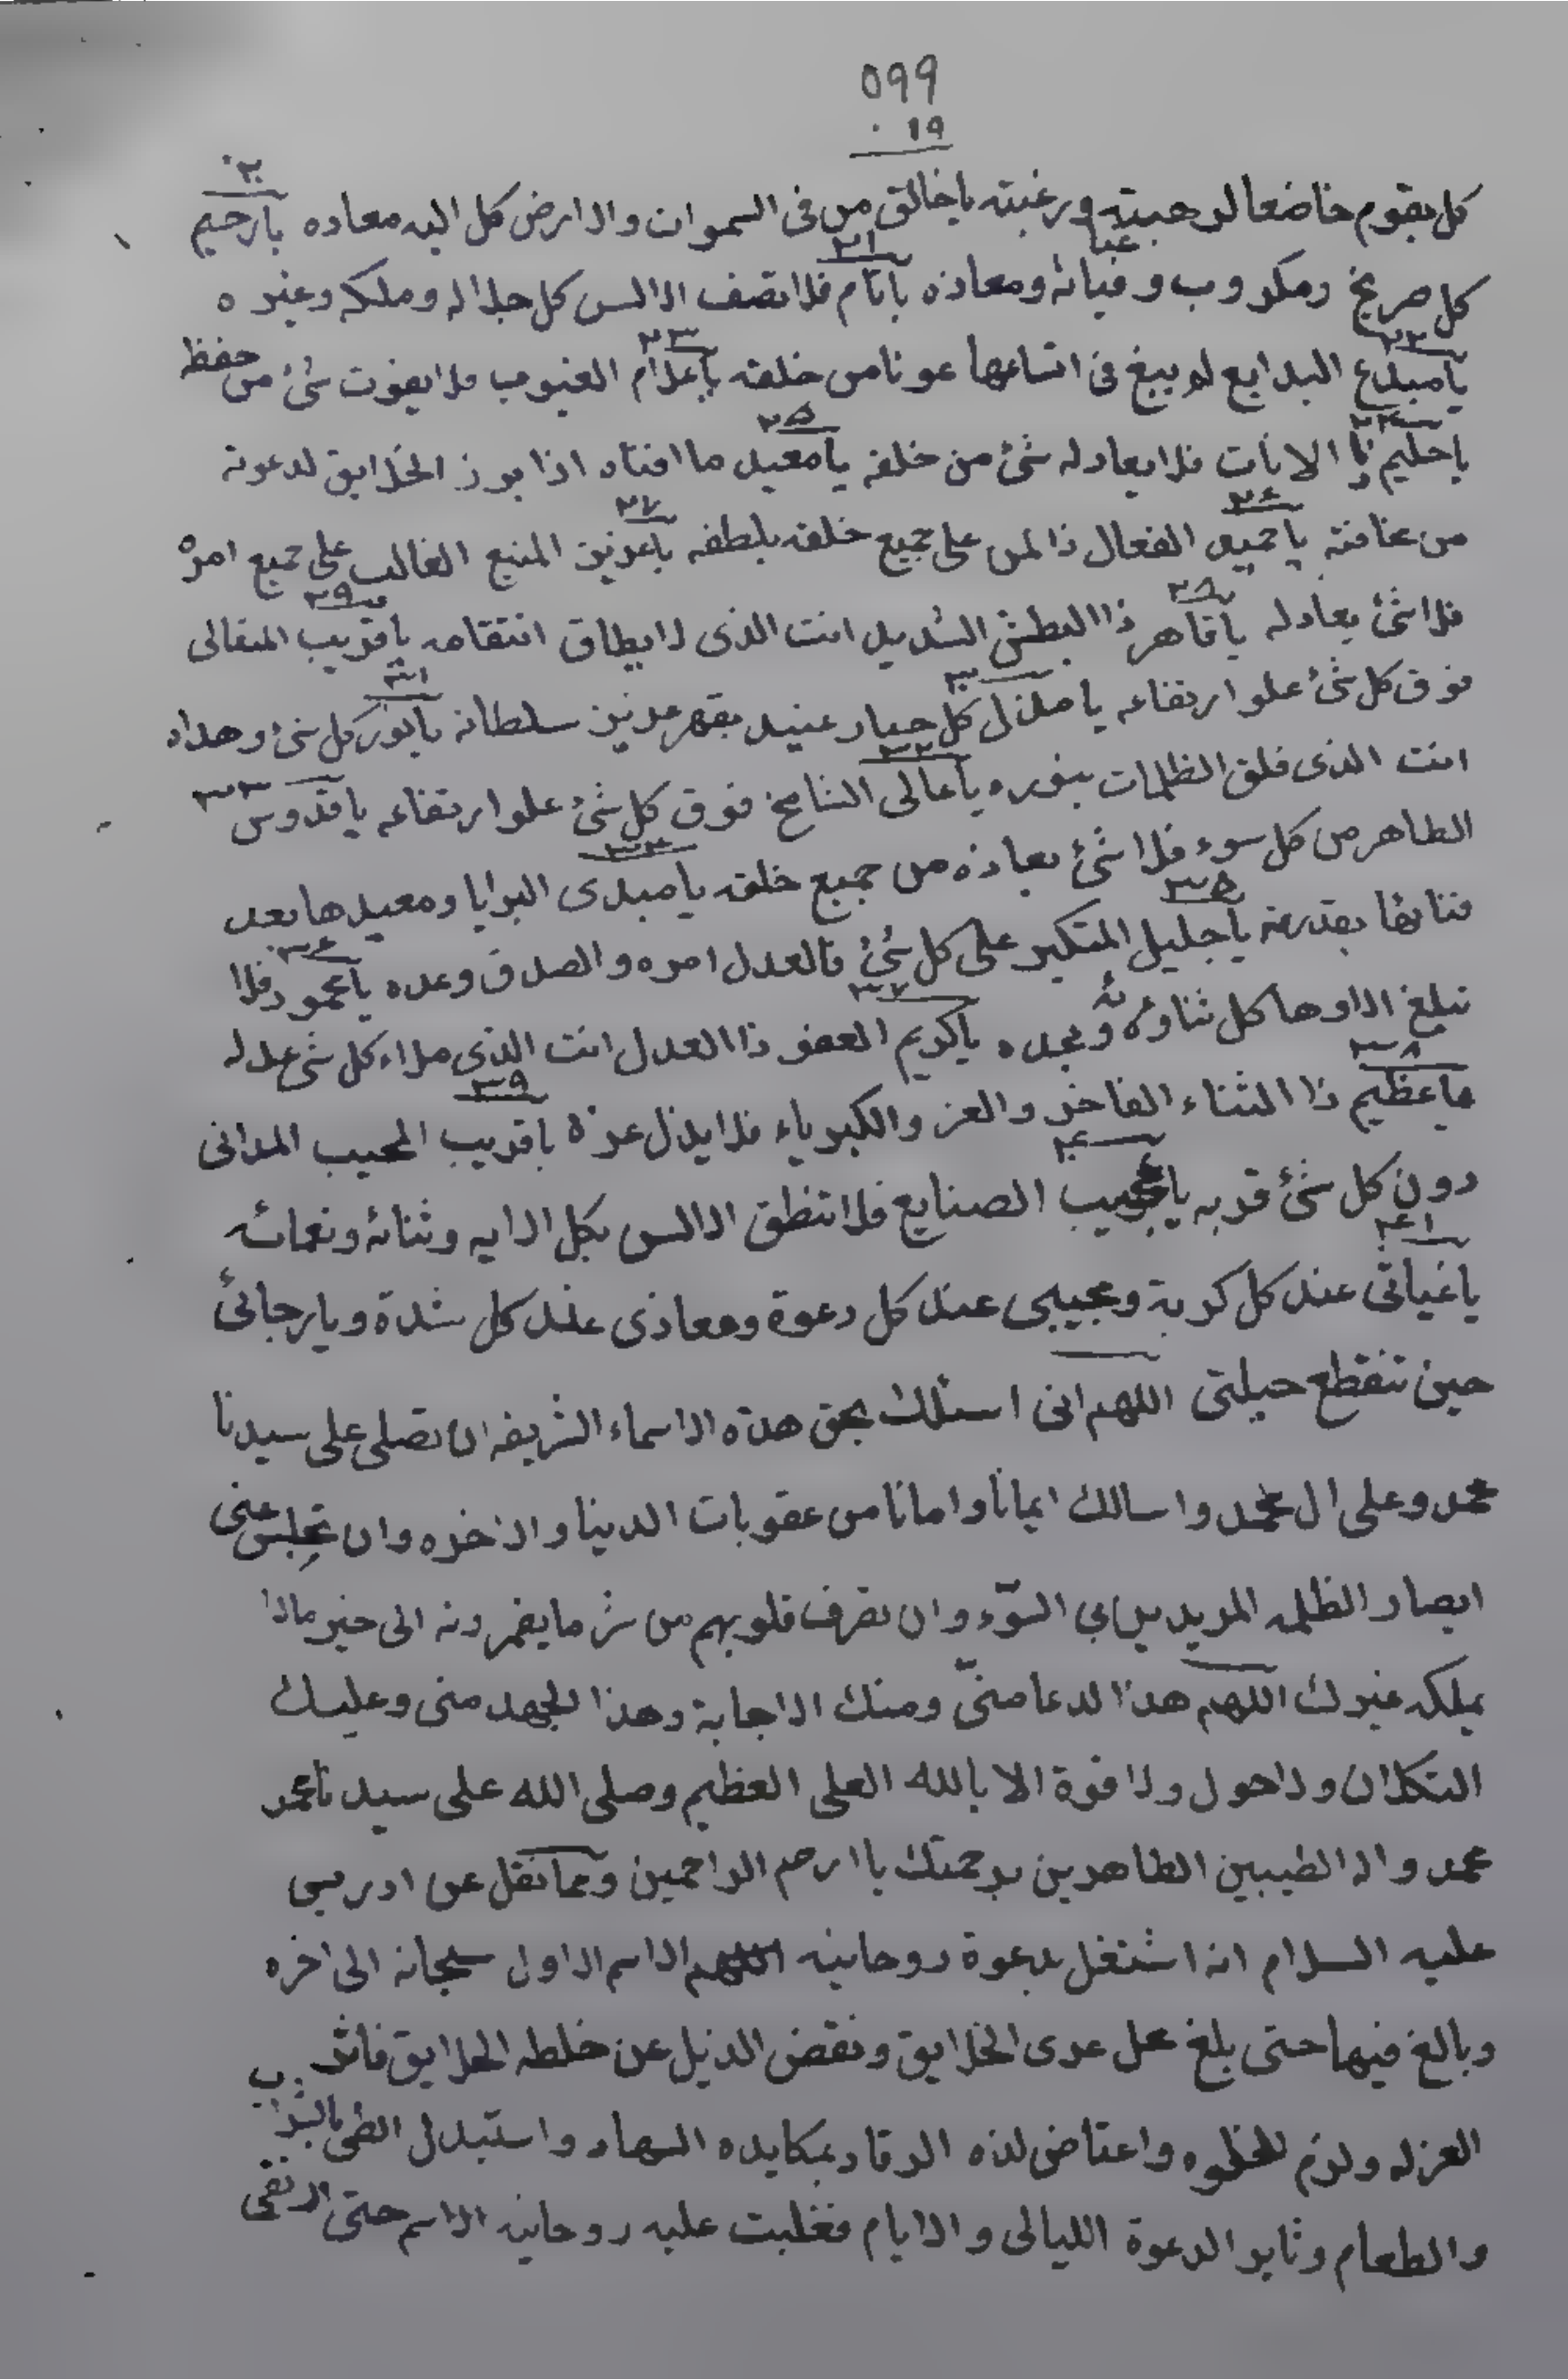 ٥٩٩
١٩
٢٠
كل يقوم خاضعا لرهبته ورغبته ياخالق من فى السموات والارض كل اليه معاده يارحيم
٢١
كل صريخ ومكروب وغياثه ومعاذه ياتام فلا تصف الالسن كل جلاله وملكه وعزه
٢٢ ٢٣
يامبدع البدايع لم يبغ فى انشائها عونا من خلقه ياعلام الغيوب فلا يفوت شئ من حفظه
٢٤ ٢٥
ياحليم ذا الانات فلا يعادله شئ من خلقه يامعيد ما افناه اذا برز الخلايق لدعوته
٢٦ ٢٧
من مخافته ياحميد الفعال ذا المن على جميع خلقه بلطفه ياعزيز المنيع الغالب على جميع امره
٢٨ ٢٩
فلا شئ يعادله ياقاهر ذا البطش الشديد انت الذى لا يطاق انتقامه ياقريب المتعالى
٣٠ ٣١
فوق كل شئ علو ارتفاعه يامذل كل جبار عنيد بقهر عزيز سلطانه يانور كل شئ وهداه
٣٢ ٣٣
انت الذى فلق الظلمات بنوره ياعالى الشامخ فوق كل شئ علو ارتفاعه ياقدوس
٣٤
الطاهر من كل سوء فلا شئ يعاذه من جميع خلقه يامبدى البرايا ومعيدها بعد
٣٥ ٣٦
فنائها بقدرته ياجليل المتكبر على كل شئ فالعدل امره والصدق وعده يامحمود فلا
٣٧
تبلغ الاوهام كل ثناؤه ومجده ياكريم العفو ذا العدل انت الذى ملاء كل شئ عدله
٣٨ ٣٩
ياعظيم ذا الثناء الفاخر والعز والكبرياء فلا يذل عزه ياقريب المجيب المدانى
٤٠
دون كل شئ قربه ياعجيب الصنايع فلا تنطق الالسن بكل الايه وثنائه ونعمائه
٤١
ياغياثى عند كل كربة ومجيبى عند كل دعوة ومعاذى عند كل شدة ويا رجائى
حين تنقطع حيلتى اللهم انى اسئلك بحق هذه الاسماء الشريفه ان تصلى على سيدنا
محمد وعلى ال محمد واسالك ايمانا وامانا من عقوبات الدنيا والاخره وان تحبس عنى
ابصار الظلمه المريدين بى السوء وان تصرف قلوبهم من شر ما يضمرونه الى خير مالا
يملكه غيرك اللهم هذا الدعا منى ومنك الاجابة وهذا الجهد منى وعليك
التكلان ولاحول ولا قوة الا بالله العلى العظيم وصلى الله على سيدنا محمد
محمد واله الطيبين الطاهرين برحمتك يا ارحم الراحمين ومما نقل عن ادريس
عليه السلام انه اشتغل بدعوة روحانيه الاسم الاول سبحانه الى اخره
وبالغ فيها حتى بلغ محل عرى الخلايق ونفض الذيل عن خلطه الخلايق فاثر
العزله ولزم الخلوه واعتاض لذه الرقاد بمكايده السهاد واستبدل الطى بالشراب
والطعام وثابر الدعوة الليالى والايام فغلبت عليه روحانيه الاسم حتى ارتقى